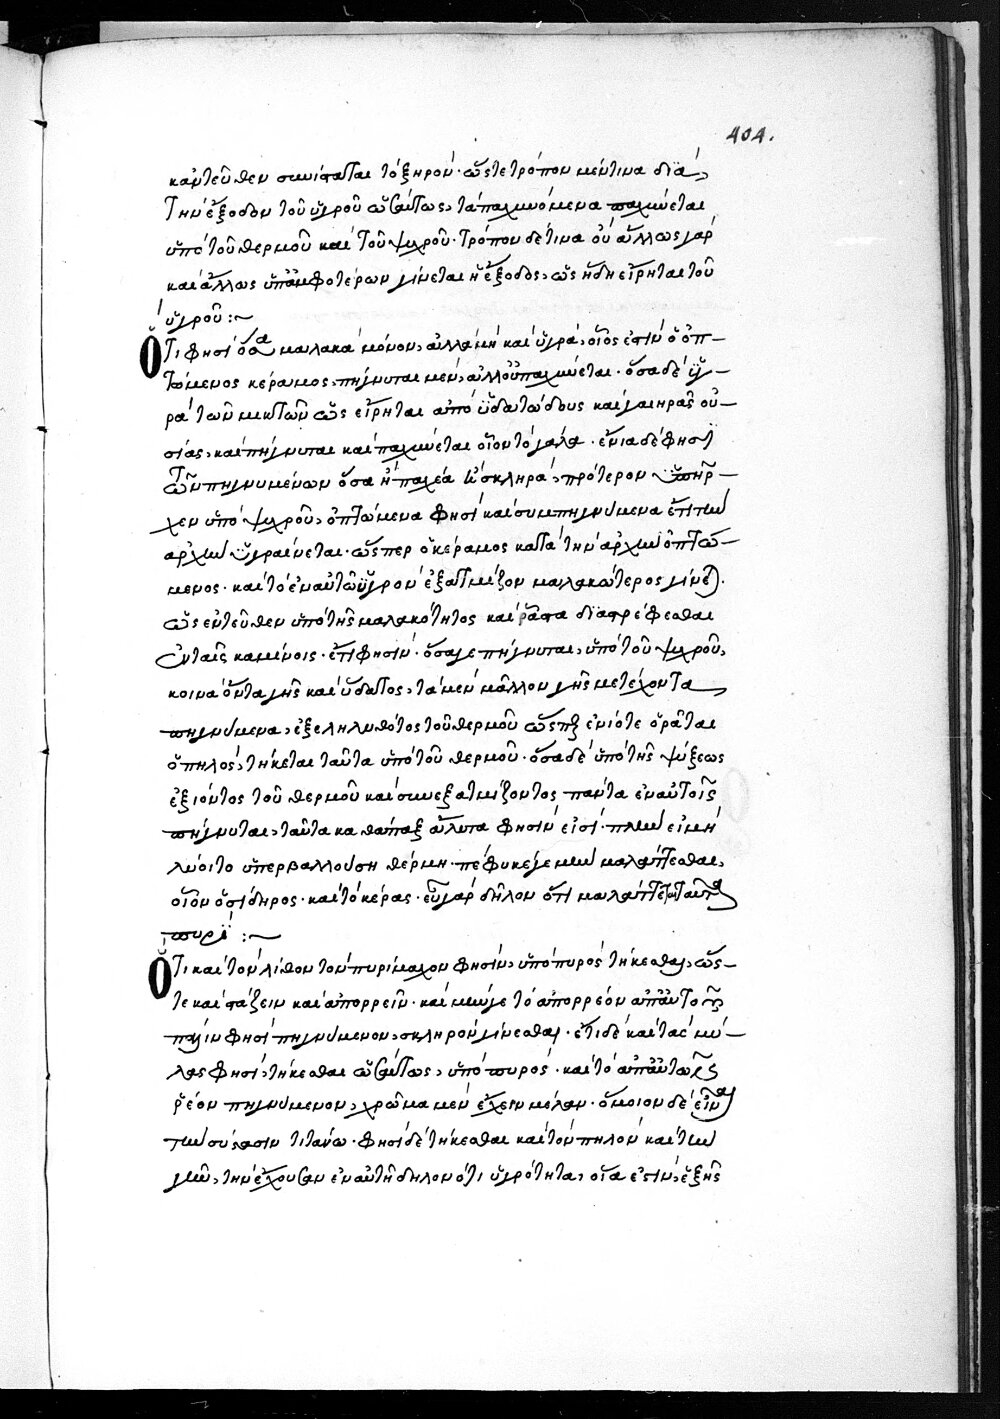 404.
κἀντεῦθεν συνίσταται τὸ ξηρόν· ὥστε τρόπον μέν τινα διὰ
τὴν ἔξοδον τοῦ ὑγροῦ ὡσαύτως, τὰ παχυνόμενα παχύνεται
ὑπὸ τοῦ θερμοῦ καὶ τοῦ ψυχροῦ· τρόπον δέ τινα οὐ ἄλλως γὰρ
καὶ ἄλλως ὑπ' ἀμφοτέρων γίνεται ἡ ἔξοδος, ὡς ἤδη εἴρηται τοῦ
ὑγροῦ :~
Ὅτι φησὶ ὅσα μαλακὰ μόνον, ἀλλὰ μὴ καὶ ὑγρά, οἷός ἐστιν ὁ ὀπ-
τώμενος κέραμος, πήγνυται μέν, ἀλλ' οὐ παχύνεται· ὅσα δὲ ὑγ-
ρὰ τῶν μικτῶν ὡς εἴρηται ἀπὸ ὑδατώδους καὶ γαιηρᾶς οὐ-
σίας, καὶ πήγνυται καὶ παχύνεται οἷον τὸ γάλα· ἔνια δὲ φησὶ
τῶν πηγνυμένων ὅσα ἢ παχέα ἢ σκληρὰ, πρότερον ὑπῆρ-
χεν ὑπὸ ψυχροῦ, ὀπτώμενα φησὶ καὶ συμπηγνύμενα ἔτι τὴν
ἀρχὴν ὑγραίνεται· ὥσπερ ὁ κέραμος κατὰ τὴν ἀρχὴν ὀπτώ-
μενος· καὶ τὸ ἐν αὐτῶ ὑγρὸν ἐξατμίζον μαλακώτερος γίνεται·
ὡς ἐντεῦθεν ὑπὸ τῆς μαλακότητος καὶ ῥᾷστα διαστρέφεσθαι
ἐν ταῖς καμίνοις· ἔτι φησὶν· ὅσα γε πήγνυται, ὑπὸ τοῦ ψυχροῦ,
κοινὰ ὄντα γῆς καὶ ὕδατος, τὰ μὲν μᾶλλον γῆς μετέχοντα,
πηγνύμενα, ἐξεληλυθότος τοῦ θερμοῦ ὥσπερ ἐνίοτε ὁρᾶται
ὁ πηλός, τήκεται ταῦτα ὑπὸ τοῦ θερμοῦ· ὅσα δὲ ὑπὸ τῆς ψύξεως
ἐξιόντος τοῦ θερμοῦ καὶ συνεξατμίζοντος πάντα ἐν αὐτοῖς
πήγνυται, ταῦτα καθάπαξ ἄλυτα φησὶν εἰσί· πλὴν εἰ μὴ
λύοιτο ὑπερβαλλούση θέρμη· πέφυκέ γε μὴν μαλάττεσθαι,
οἷον ὁ σίδηρος· καὶ τὸ κέρας· εὖ γὰρ δῆλον ὅτι μαλάττεται ταῦτα
πυρί :~
Ὅτι καὶ τὸν λίθον τὸν πυρίμαχον φησὶν, ὑπὸ πυρὸς τήκεσθαι, ὥσ-
τε καὶ στάζειν καὶ ἀπορρεῖν· καὶ μήν γε τὸ ἀπορρέον ἀπ' αὐτοῦ
πάλιν φησὶ πηγνύμενον, σκληρὸν γίνεσθαι· ἔτι δὲ καὶ τὰς μύ-
λας φησὶ, τήκεσθαι ὡσαύτως, ὑπὸ πυρός· καὶ τὸ ἀπ' αὐτῶν
ῥέον πηγνύμενον, χρῶμα μὲν ἔχειν μέλαν· ὅμοιον δὲ εἶναι
τὴν σύστασιν τιτάνω· φησὶ δὲ τήκεσθαι καὶ τὸν πηλὸν καὶ τὴν
γῆν, τὴν ἔχουσαν ἐν αὐτῆ δηλονότι ὑγρότητα, οἷα ἐστὶν, ἑξῆς